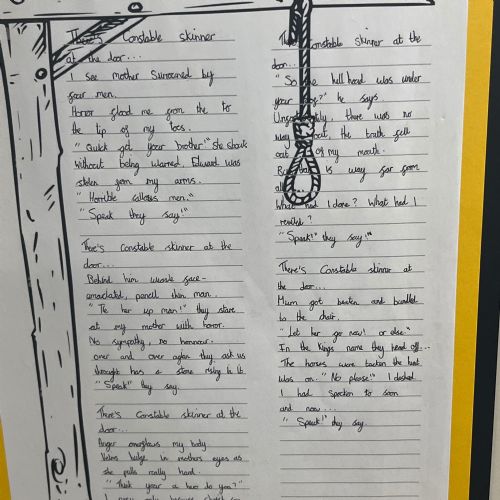 There's Constable skinner
at the door...
I see mother Surrounded by
four men.
Horror flood me from the to
the tip of my toes.
"Quick get your brother" she
without being warned. Edward was
stolen from my arms.
"Horrible callous men."
"Speak they say!"
There's Constable skinner at the
door...
Behind him face-
emaclated, pencil thin man.
"Tie her up man!" they stare
at my mother with horror.
No sympathy, no honnour.
over and over again they ask us
has a stone rising to it
"Speak" they say.
There's Constable skinner at the
door...
Anger overflows my body
Veins bulge in mothers eyes as
she pulls really hard.
"Think your a hero do you?"
There's Constable skinner at the
door...
"So the hell head was under
your " he says.
Unfortunately, there was no
way out, the truth fell
out of my mouth.
is way far from
What had I done? What had I
"Speak!" they say!"
There's Constable skinner at
the door...
Mum got beaten and bundled
to the chair.
"Let her go now! or else"
In the kings name they head off...
The horses were the hunt
was on. "No please!" I
I had to soon
and now...
"Speak!" they say